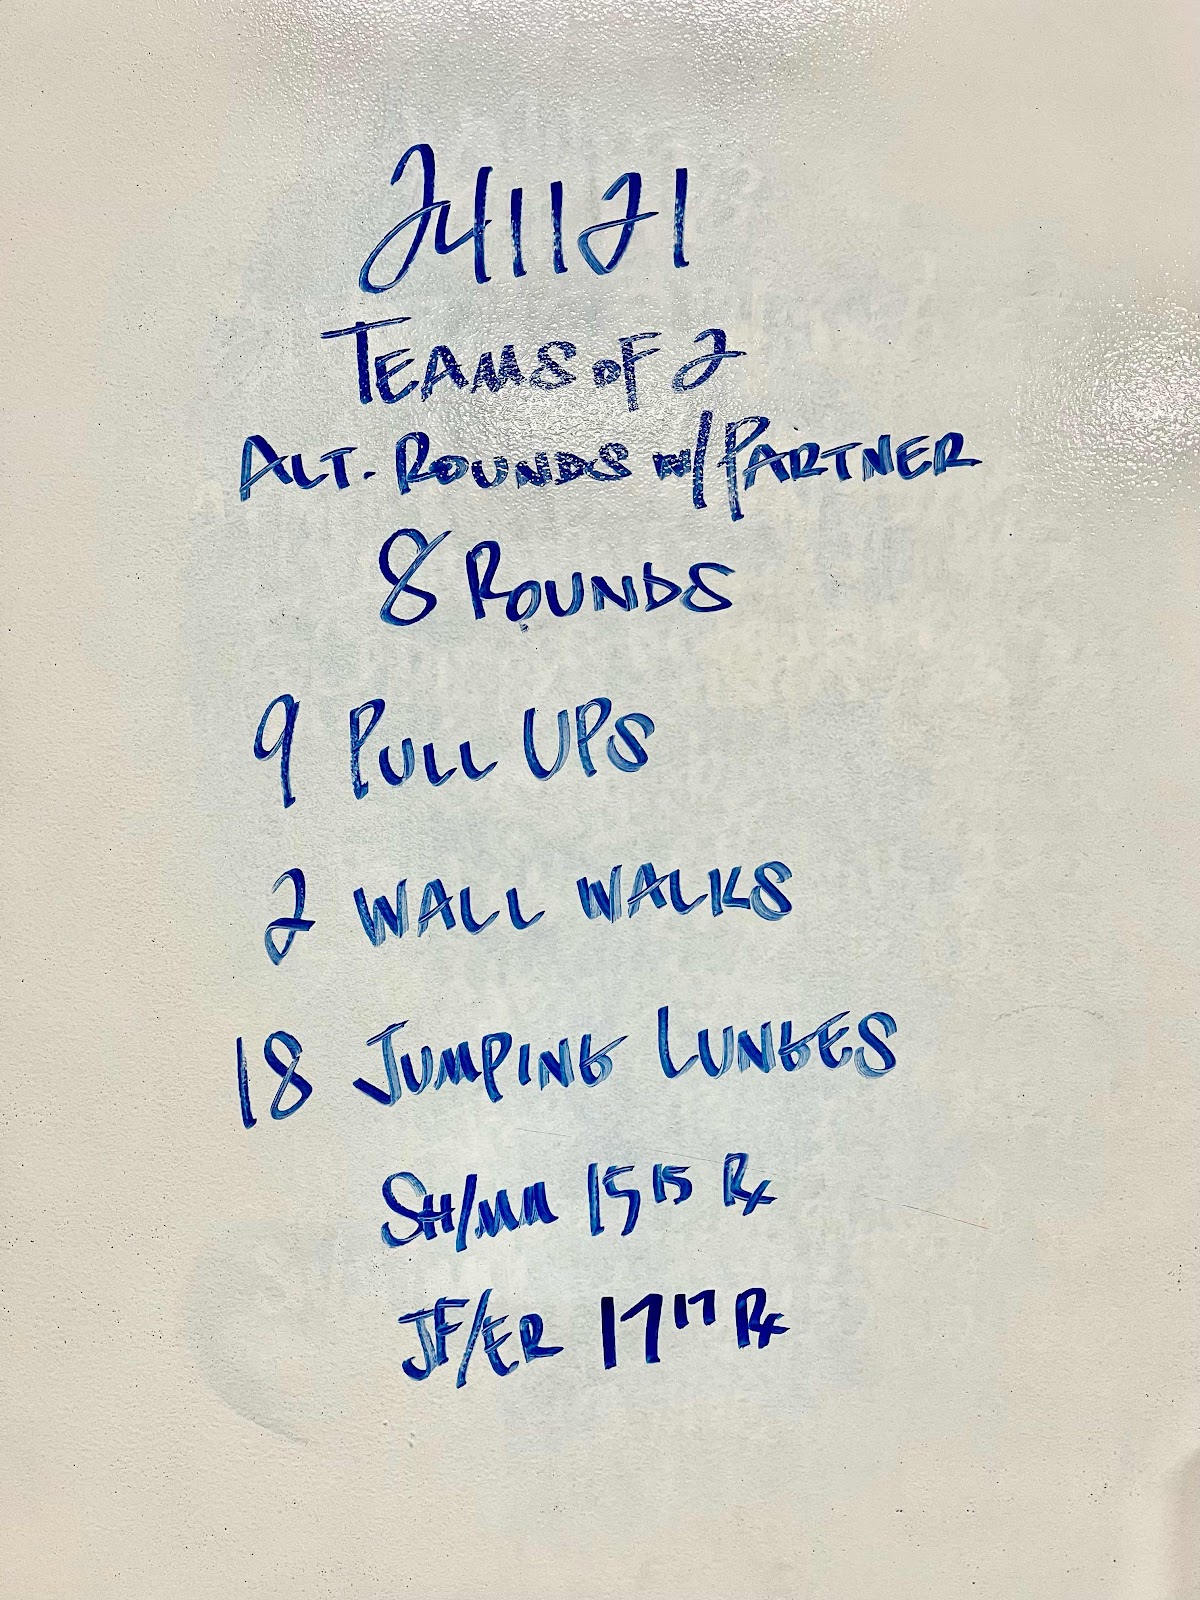 241121
TEAMS OF 2
ALT. ROUNDS W/PARTNER
8 ROUNDS
9 PULL UPS
2 WALL WALKS
18 JUMPING LUNGES
SH/MM 15 15 Rx
JF/ER 17 17 Rx